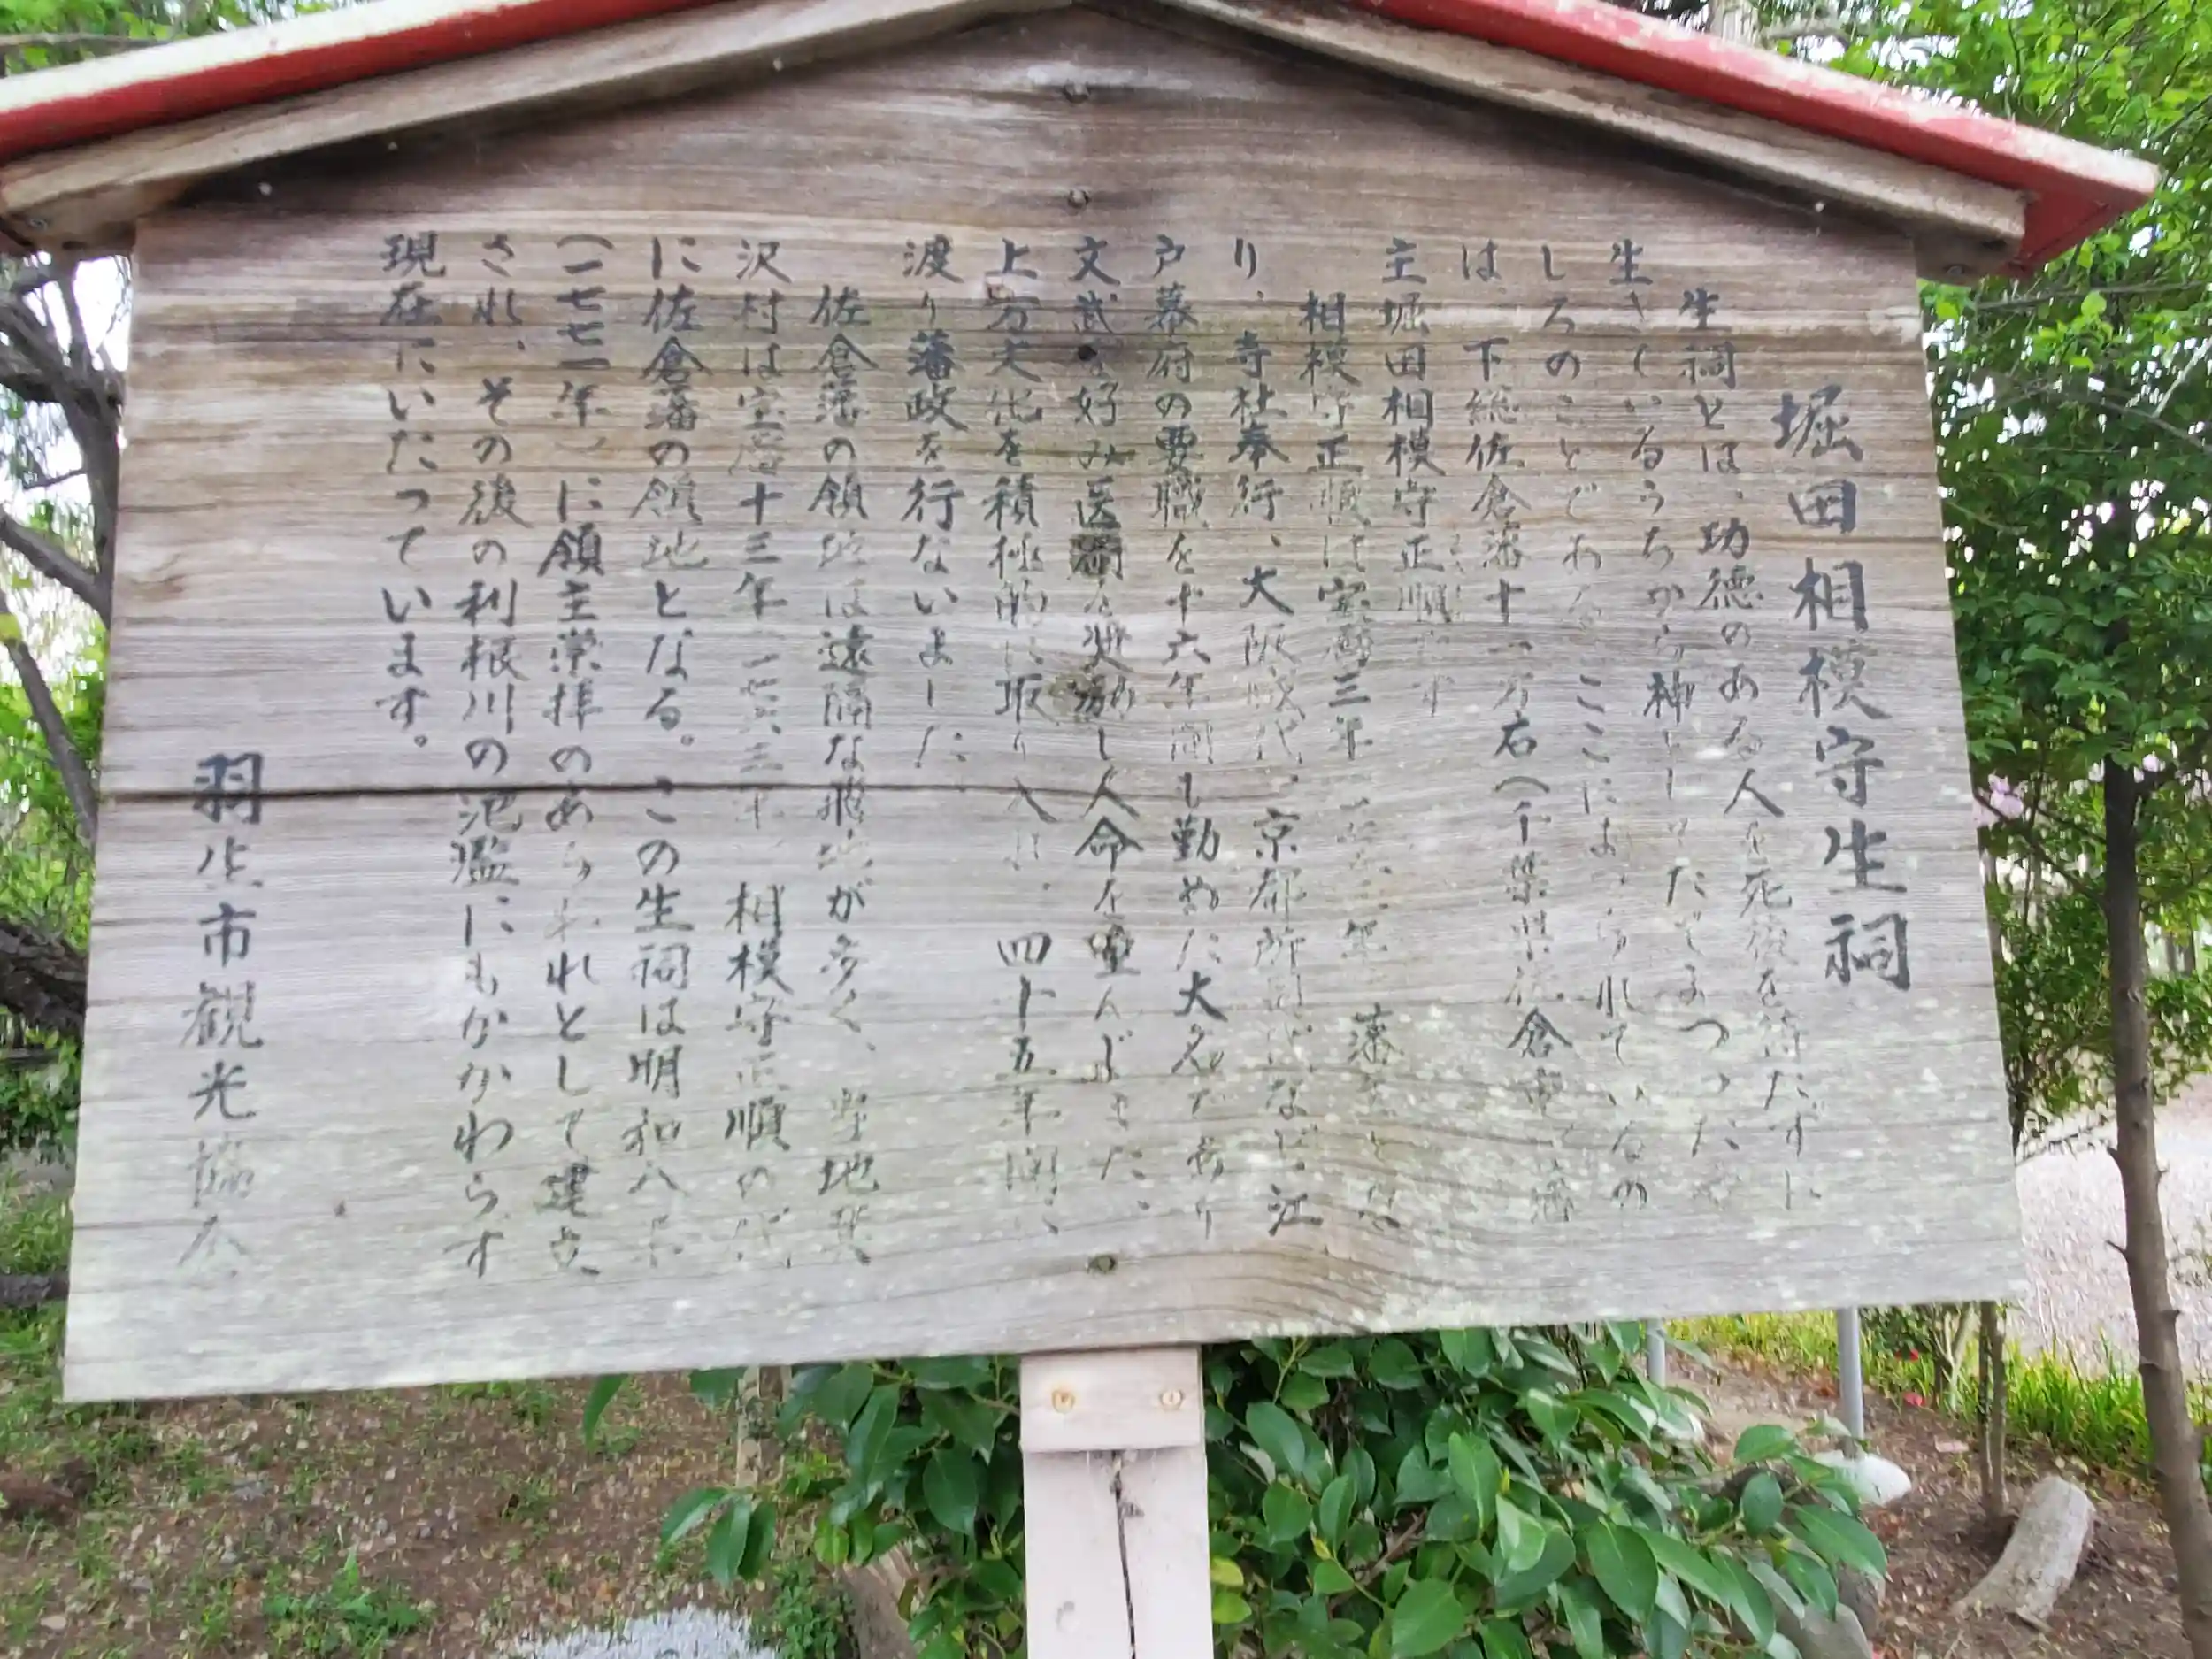 堀田相模守生祠
生祠とは、功徳のある人を死後を待たずに
生きているうちから神としてたてまつったや
しろのことである。ここにまつられているの
は、下総佐倉藩十一万石(千葉県佐倉市)藩
主堀田相模守正順です
相模守正順は宝暦三年 藩主とな
り、寺社奉行、大阪城代、京都所司代など江
戸幕府の要職を十六年間も勤めた大名であり
文武を好み医 を奨励し人命を重んじました、
上方文化を積極的に取り入れ、四十五年間に
渡り藩政を行ないました
佐倉藩の領地は遠隔な飛地が多く、当地発
沢村は宝暦十三年(一七六三年)相模守正順の代
に佐倉藩の領地となる。この生祠は明和八年
(一七七一年)に領主崇拝のあらわれとして建立
され、その後の利根川の氾濫にもかかわらず
現在にいたっています。
羽生市観光協会